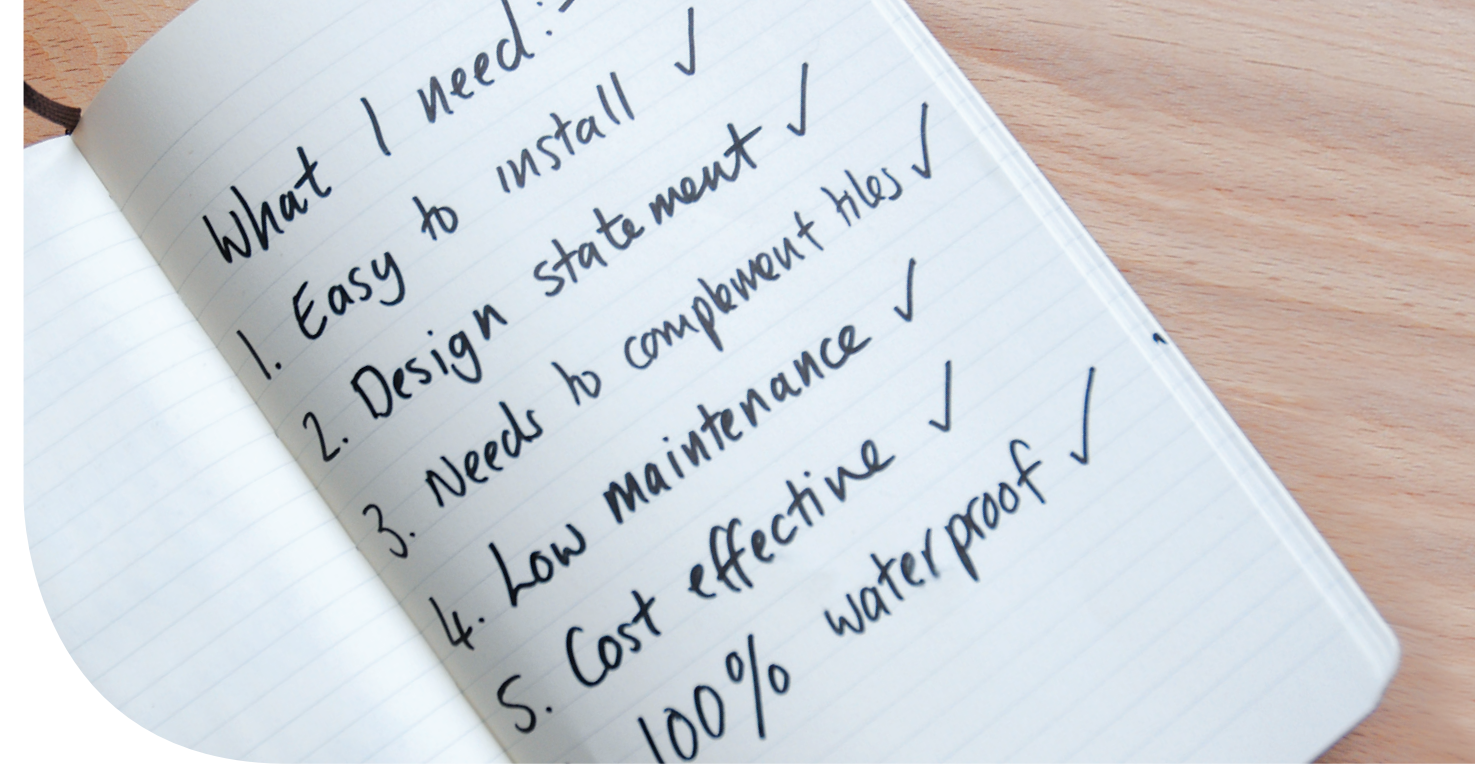 What I need:-
1. Easy to install ✓
2. Design statement ✓
3. Needs to complement tiles ✓
4. Low maintenance ✓
5. Cost effective ✓
100% waterproof ✓